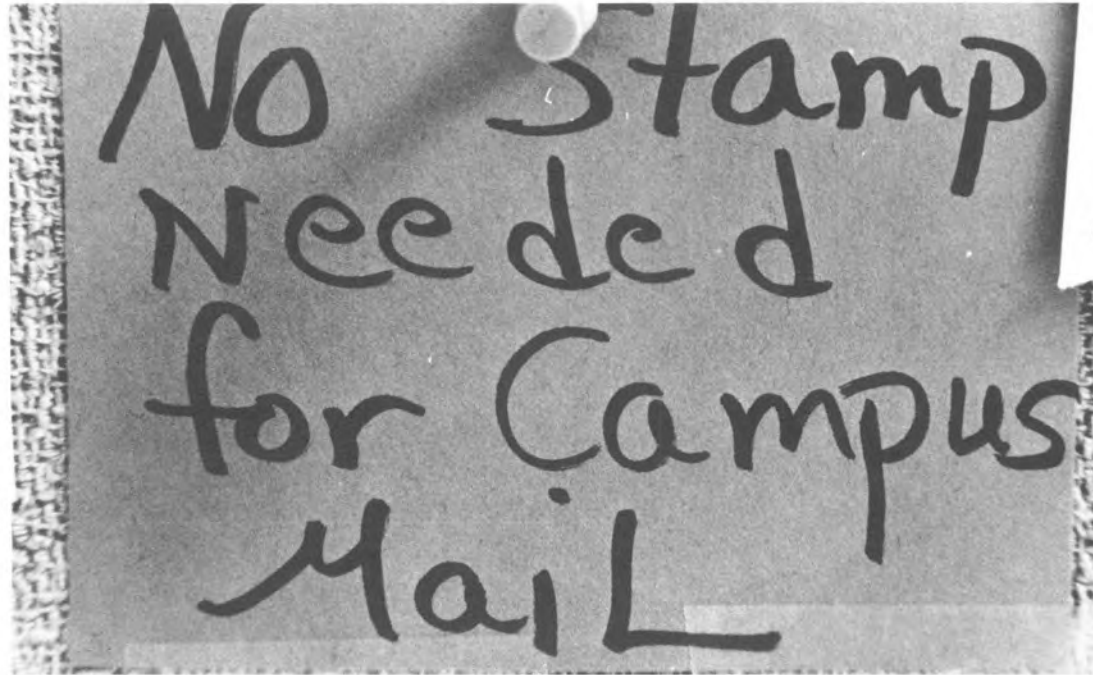 No Stamp
Needed
for Campus
MaiL